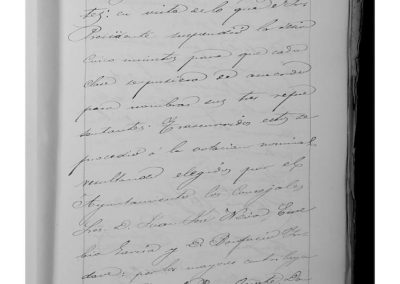 tes; en vista de lo que el Sor
Presidente suspendió la sesion
cinco minutos para que cada
clase se pusiera de acuerdo
para nombrar sus tres repre
sentantes. Trascurridos estos se
procedió á la votacion nominal
resultando elegidos por el
Ayuntamiento los Concejales
Sres. D. Juan José Neira Euse
bio Garcia y D. Bonifacio
por los mayores contribuyen